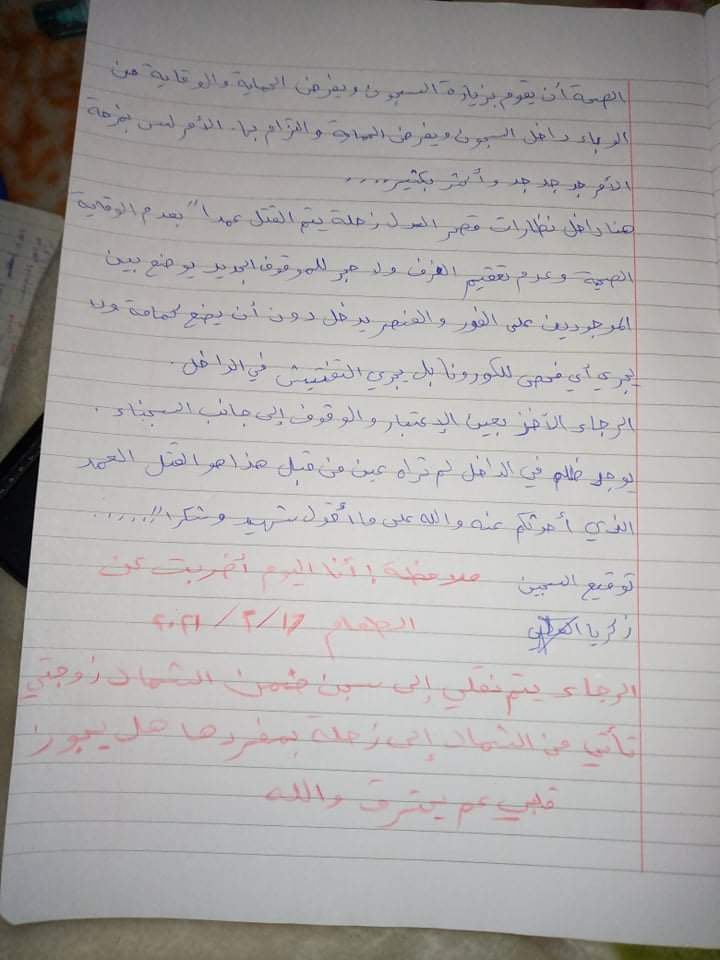 الصحة أن يقوم بزيارة السجون ويفرض الحماية والوقاية من
الوباء داخل السجون ويفرض الحماية والتزام بها. الأمر ليس بمزحة
الأمر جد جد جد وأكثر بكثير....
هنا داخل نظارات قصر العدل زحلة يتم القتل عمداً "بعدم الوقاية
الصحية وعدم تعقيم الغرف ولا حجر للموقوف الجديد يوضع بين
الموجودين على الفور والعنصر يدخل دون أن يضع كمامة ولا
يجري أي فحص للكورونا بل يجري التفتيش في الداخل.
الرجاء الأخذ بعين الإعتبار والوقوف إلى جانب السجناء.
يوجد ظلم في الداخل لم تراه عين من قبل هذا هو القتل العمد
الذي أحدثكم عنه والله على ما أقول شهيد وشكراً!!.....
توقيع السجين ملاحظة! أنا اليوم أضربت عن
زكريا الطعام ١٧/٢/٢٠٢١
الرجاء يتم نقلي إلى سجن ضمن الشمال زوجتي
تأتي من الشمال إلى زحلة بمفردها هل يجوز
قلبي عم يحترق والله